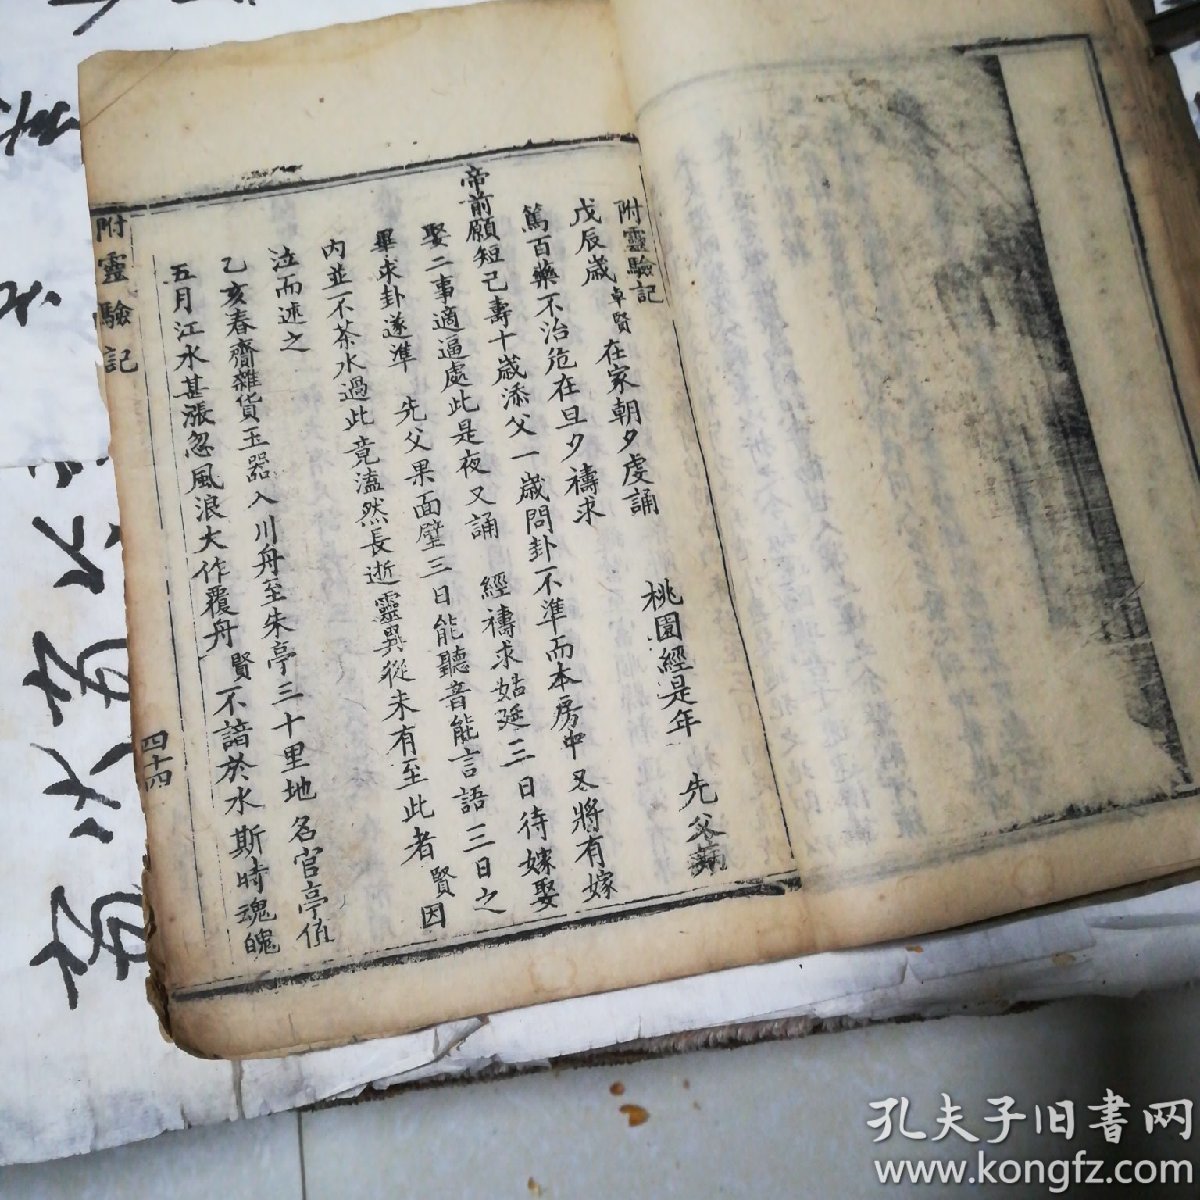 附靈驗記
戊辰歲卓賢在家朝夕虔誦　桃園經是年　先父病
篤百藥不治危在旦夕禱求
帝前願短己壽十歲添父一歲問卦不準而本房中冬將有嫁
娶二事適逼處此是夜又誦　經禱求姑延三日待嫁娶
畢求卦遂準　先父果面壁三日能聽音能言語三日之
內並不茶水過此竟溘然長逝靈異從未有至此者　賢因
泣而述之
乙亥春齎雜貨玉器入川舟至朱亭三十里地名官亭值
五月江水甚漲忽風浪大作覆舟　賢不諳於水斯時魂魄
附靈驗記
四十四
孔夫子旧書网
www.kongfz.com